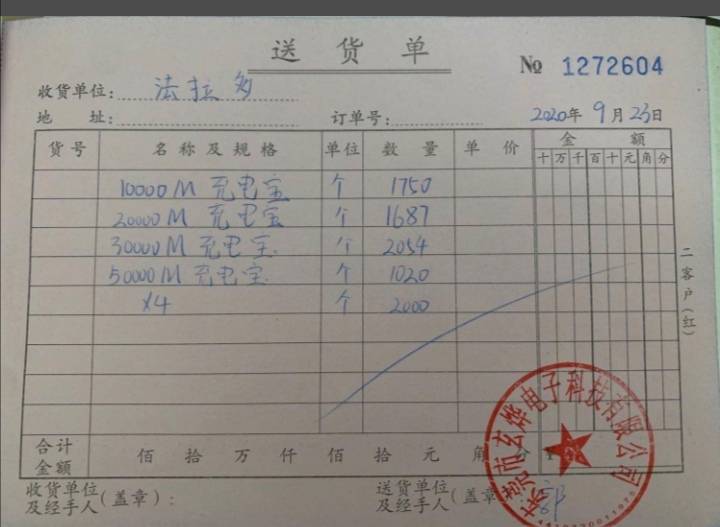 送货单
№ 1272604
收货单位: 法拉多
地 址: 订单号: 2020年9月23日
货号 名称及规格 单位 数量 单价 金额
十万千百十元角分
10000M 充电宝 个 1750
20000M 充电宝 个 1687
30000M 充电宝 个 2054
50000M 充电宝 个 1020
X4 个 2000
二客户(红)
合计金额 佰 拾 万 仟 佰 拾 元 角 分
收货单位及经手人(盖章):
送货单位及经手人(盖章
东莞市玄烨电子科技有限公司